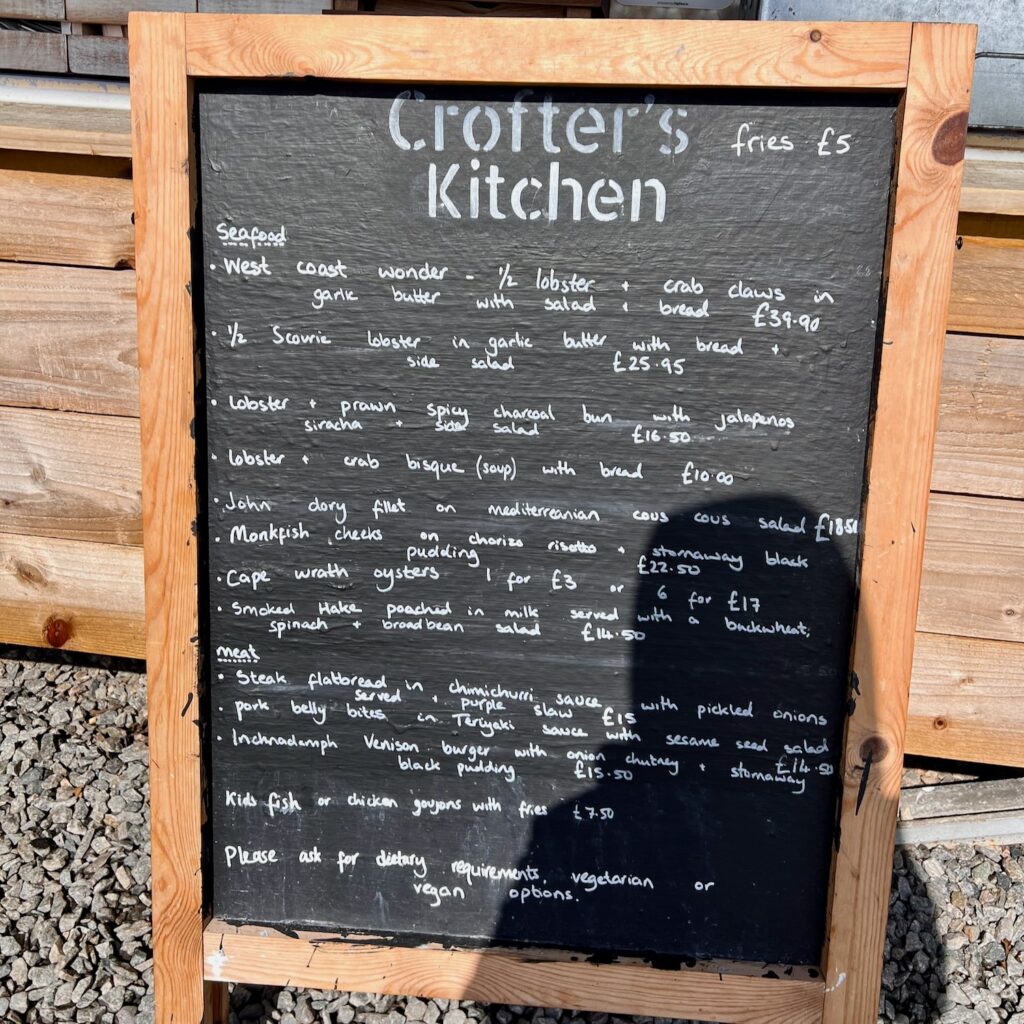 Crofter's
fries £5
Kitchen
Seafood
• West coast wonder - ½ lobster + crab claws in
garlic butter with salad + bread £39.90
• ½ Scourie lobster in garlic butter with bread +
side salad £25.95
• lobster + prawn spicy charcoal bun with jalapenos
siracha + side salad £16.50
• lobster + crab bisque (soup) with bread £10.00
• John dory fillet on mediterreanian cous cous salad £18.50
• Monkfish cheeks on chorizo risotto + stornaway black
pudding £22.50
• Cape wrath oysters 1 for £3 or 6 for £17
• Smoked Hake poached in milk served with a buckwheat,
spinach + broadbean salad £14.50
meat
• Steak flatbread in chimichurri sauce with pickled onions
served + purple slaw £15
• pork belly bites in Teriyaki sauce with sesame seed salad
£14.50
• Inchnadamph Venison burger with onion chutney + stornaway
black pudding £15.50
Kids fish or chicken goujons with fries £7.50
Please ask for dietary requirements, vegetarian or
vegan options.